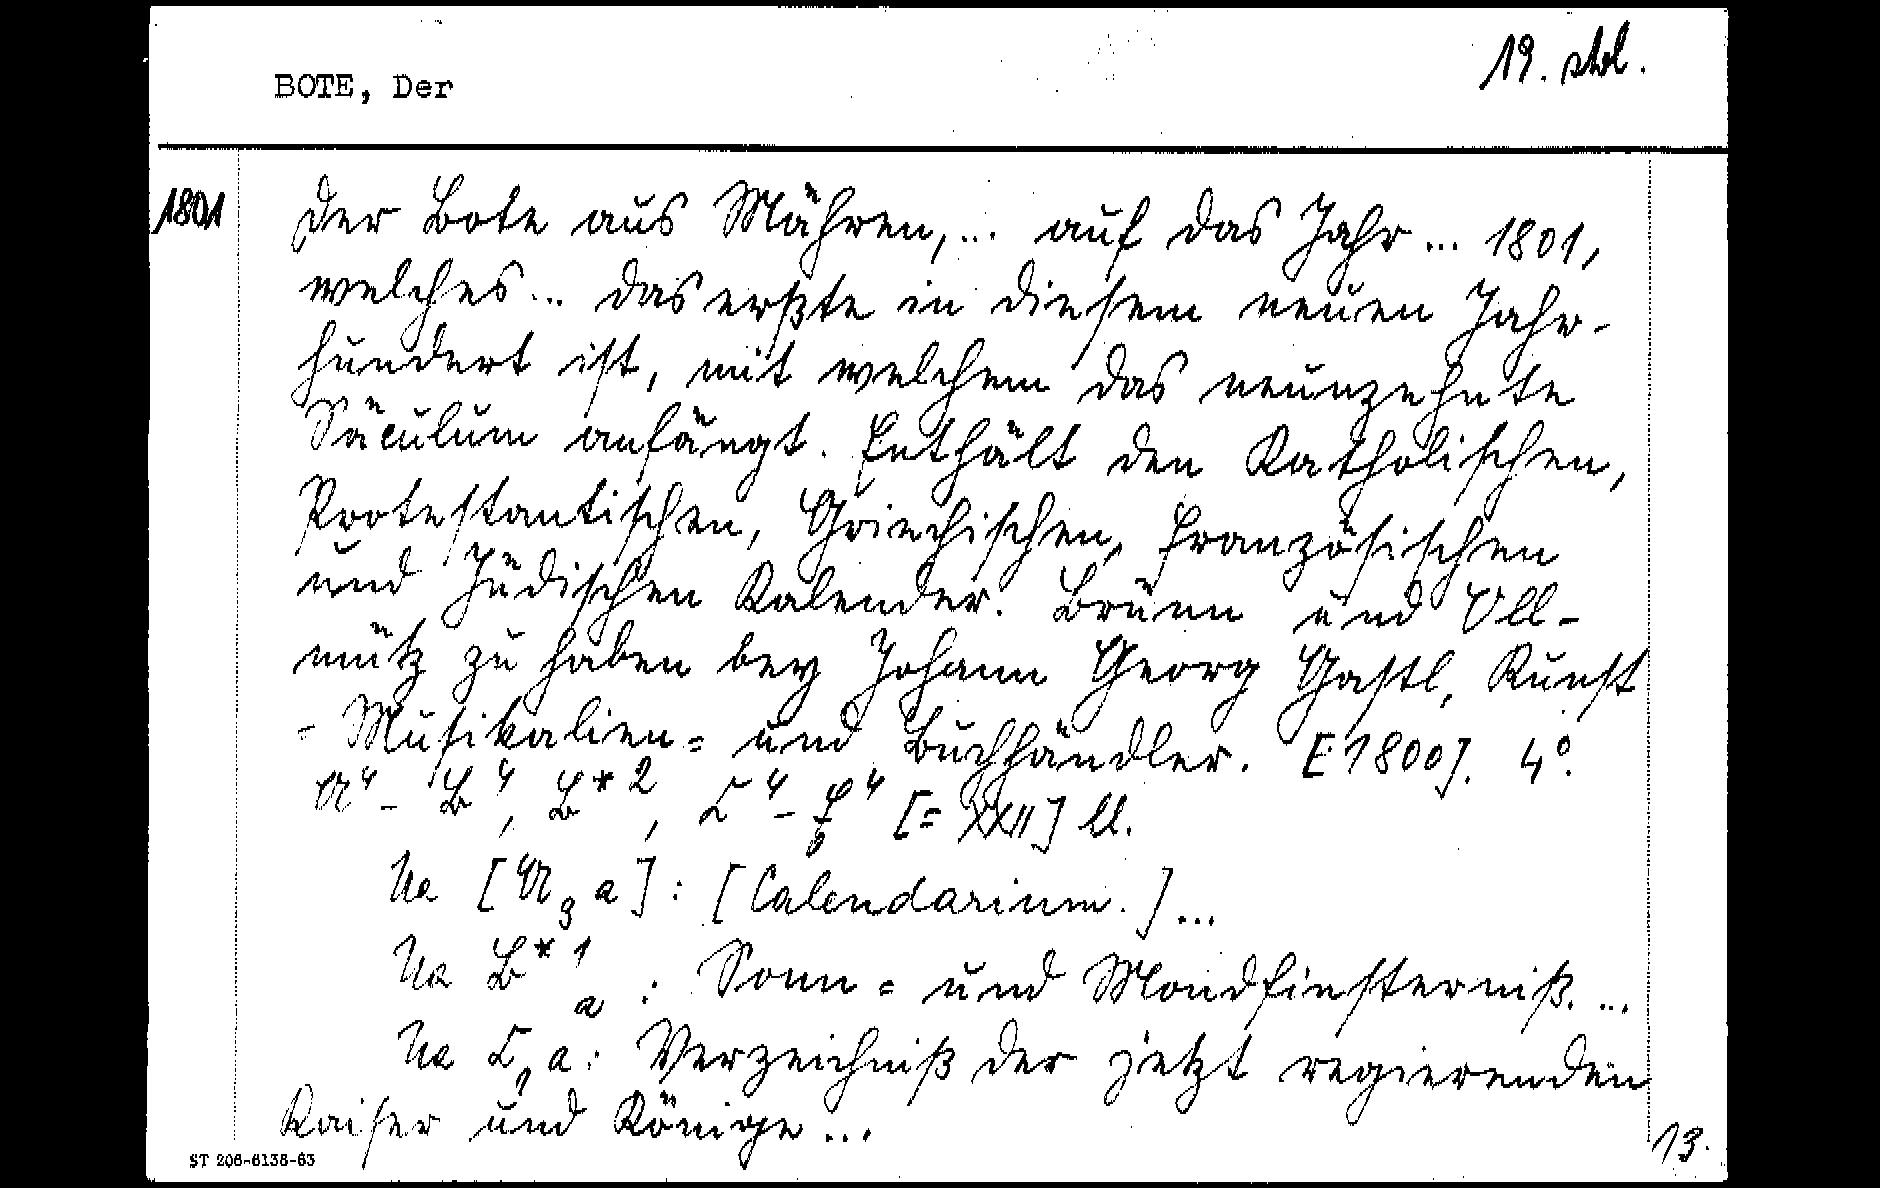 19. stol.
BOTE, Der
1801
Der Bote aus Mähren, ... auf das Jahr ... 1801,
welches ... das erßte in diesem neuen Jahr-
hundert ist, mit welchem das neunzehnte
Säculum anfängt. Enthält den Katholischen,
Protestantischen, Griechischen, Französischen
und Jüdischen Kalender. Brünn und Oll-
mütz zu haben bey Johann Georg Gastl, Kunst
- Musikalien= und Buchhändler. [1800]. 4°.
A⁴ - B⁴, B*², C⁴ - F⁴ [= XXII] ll.
Na [A₃a]: [Calendarium.] ...
Na B*¹a : Sonn= und Mondfinsterniß. ...
Na C₁a: Verzeichniß der jetzt regierenden
Kaiser und Könige ...
13.
ST 206-6138-63